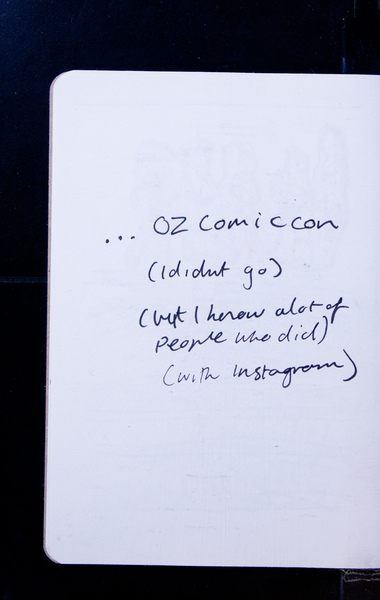 ... OZ Comiccon
(I didnt go)
(but I know alot of
people who did)
(with Instagram)